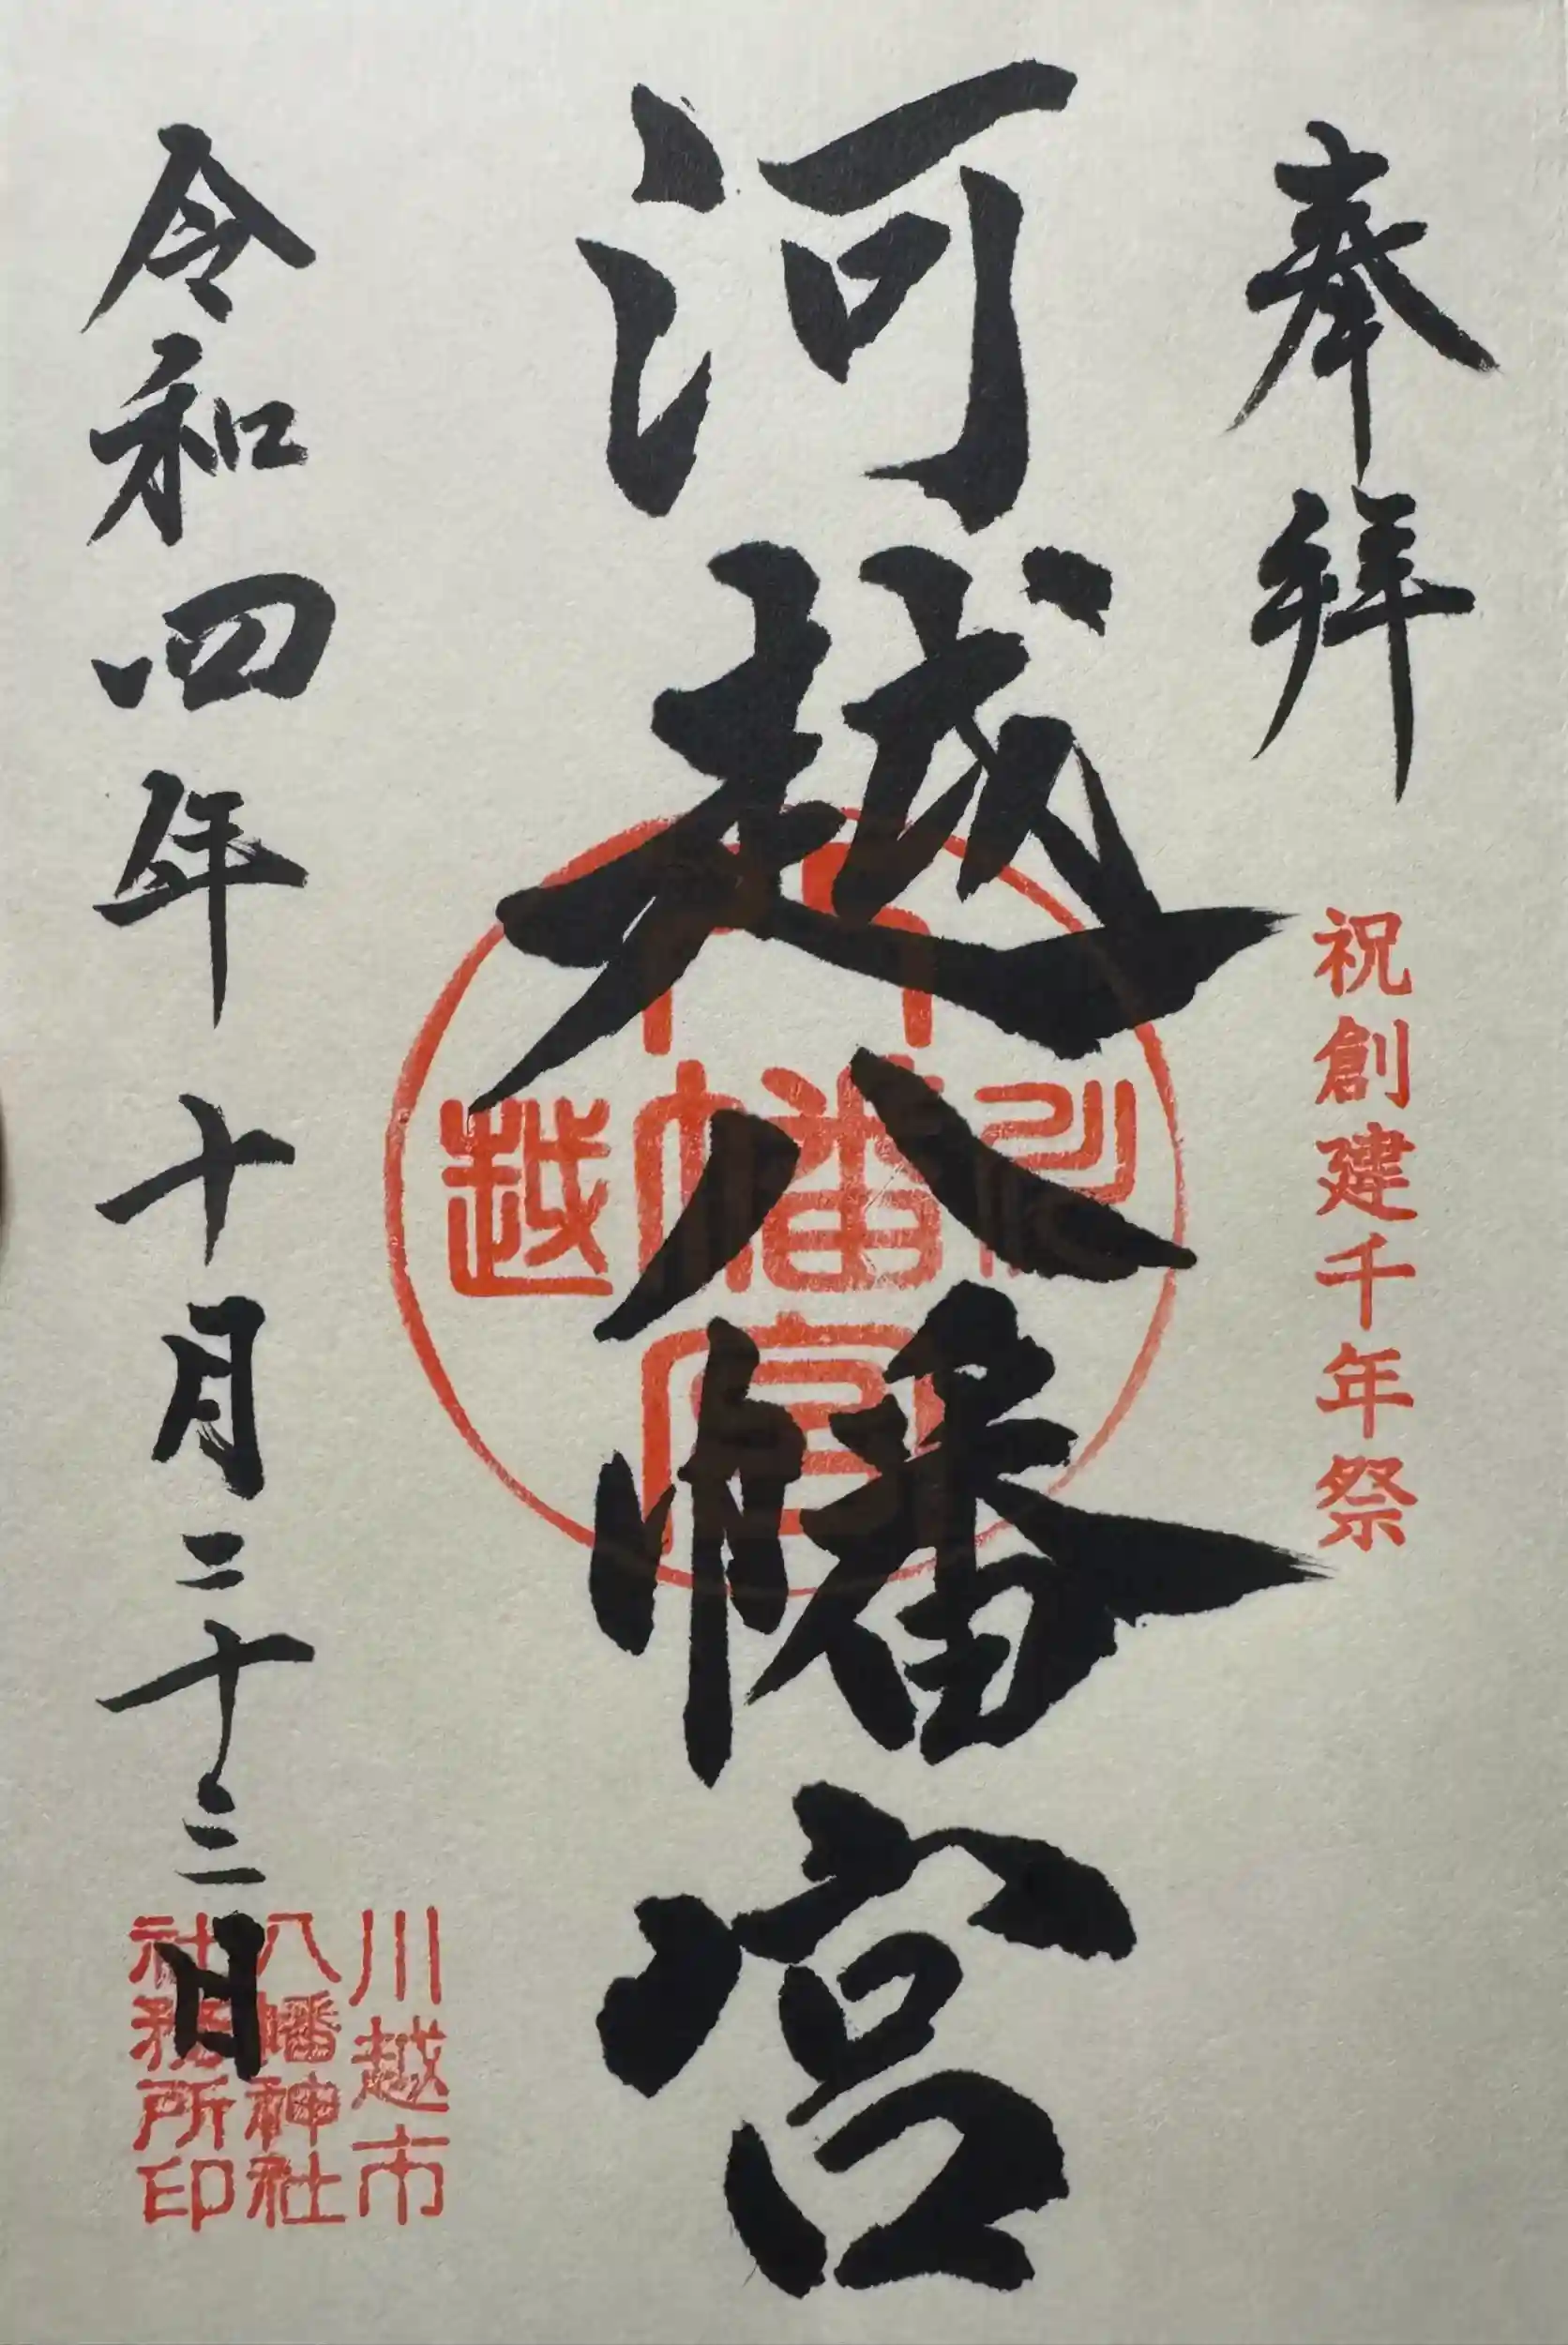 奉拝
祝創建千年祭
河越八幡宮
川越八幡宮
令和四年十月二十三日
川越市
八幡神社
社務所印